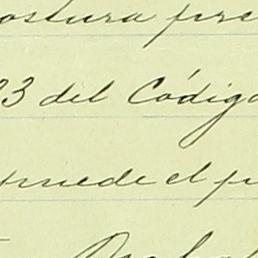 ostura pre
23 del Código
puede el p